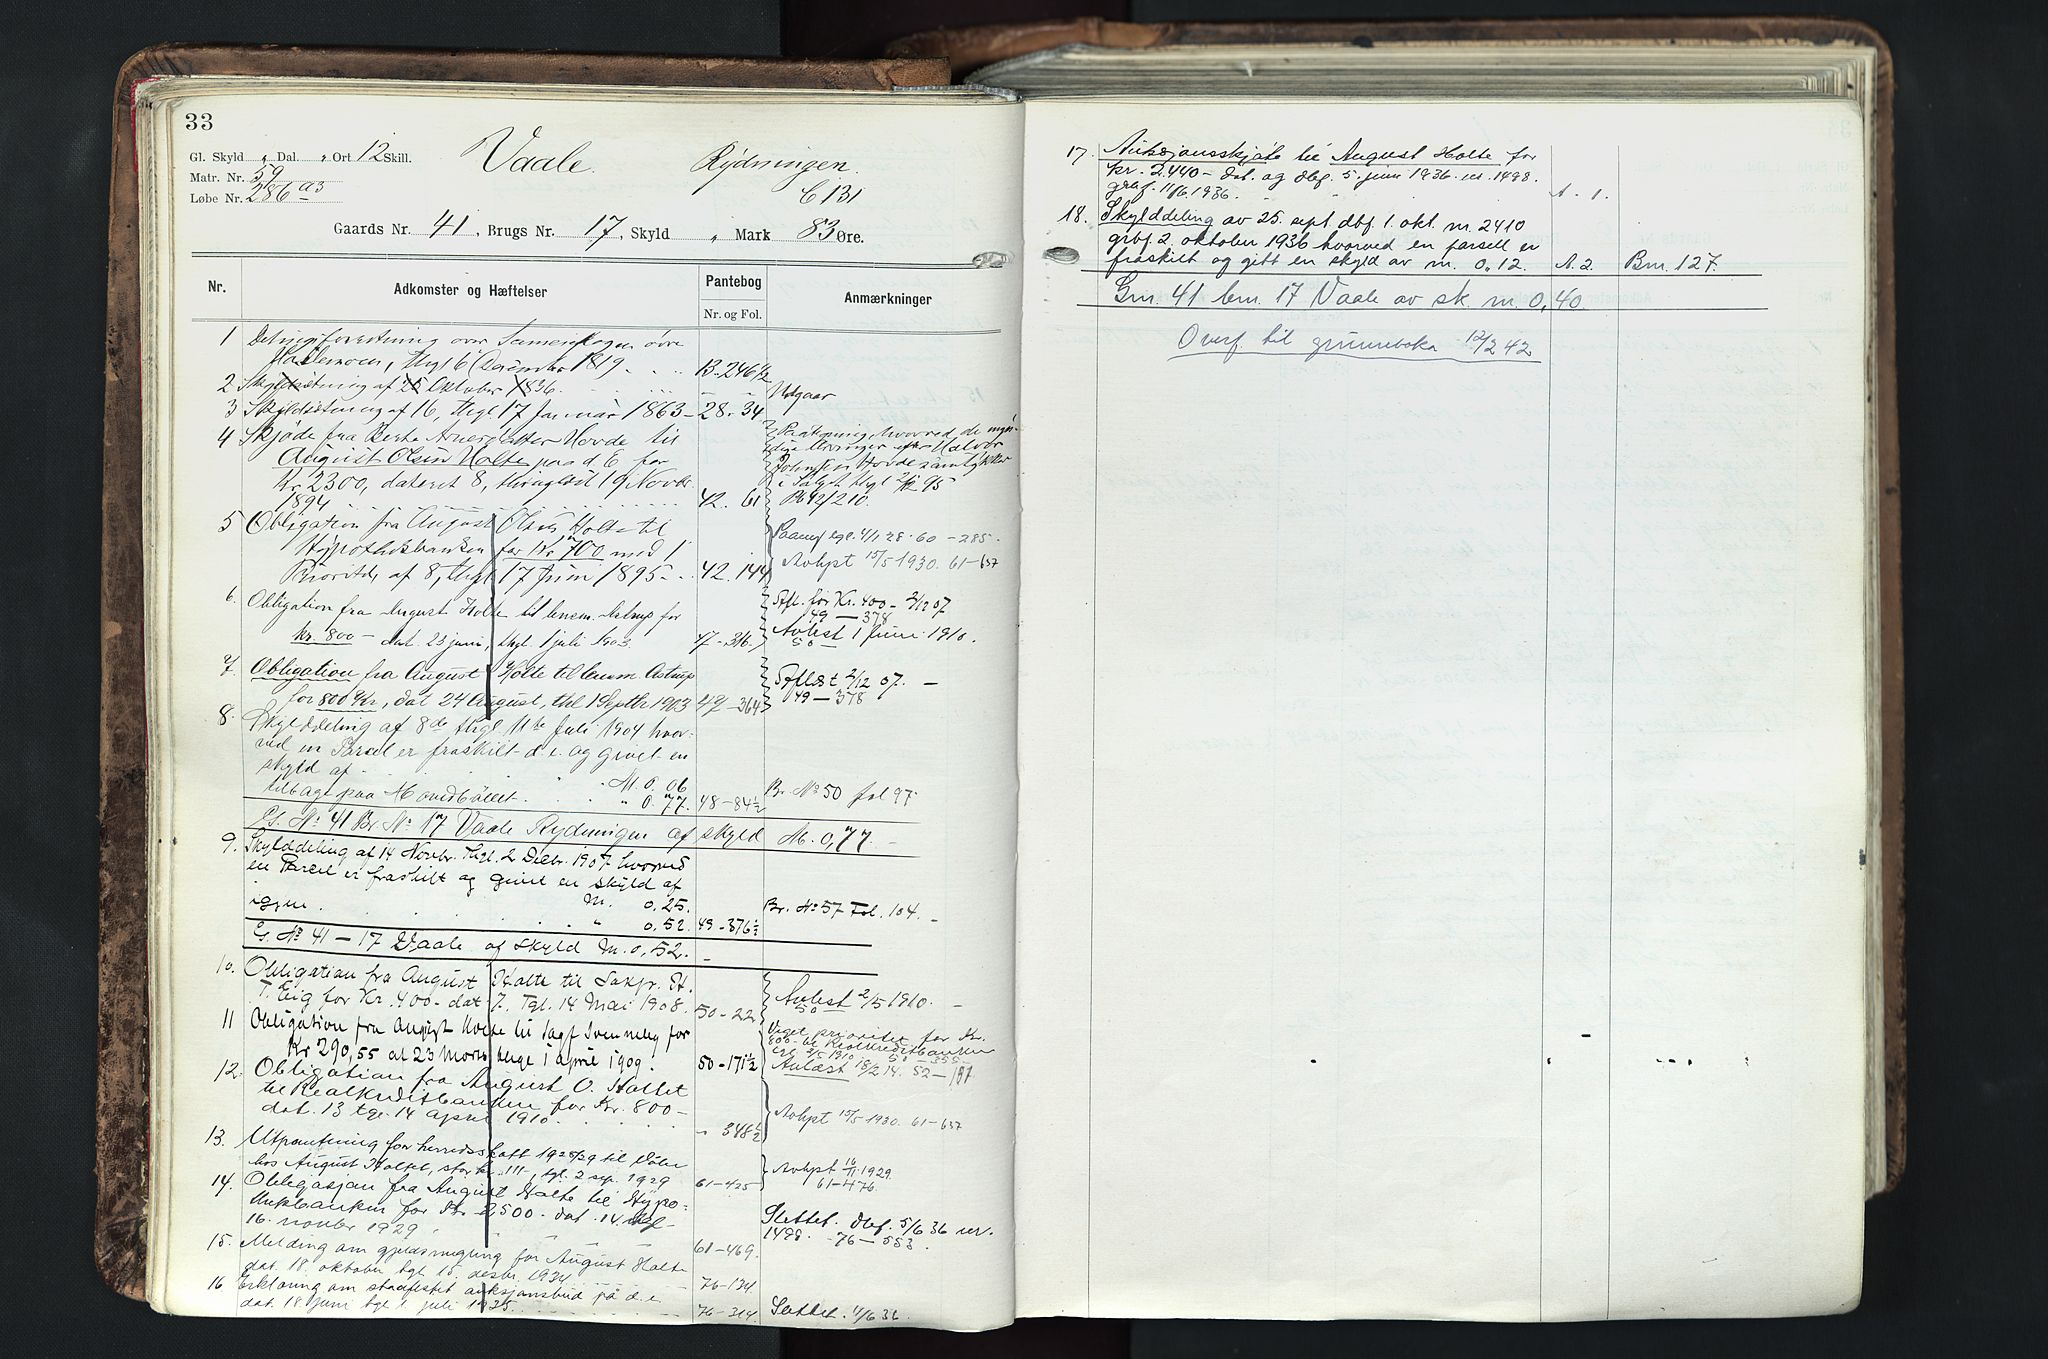 33
Gl. Skyld „ Dal. „ Ort 12 Skill.
Vaale. Rydningen.
Matr. Nr. 59
Løbe Nr. 286 a3
C 131
Gaards Nr. 41, Brugs Nr. 17, Skyld „ Mark 83 Øre.
Nr. Adkomster og Hæftelser Pantebog Nr. og Fol. Anmærkninger
1 over øvre
thgl 6 December 1819 B. 246 1/2
2 Skyldsætning af 25 Oktober 1836. Udgaar
3 Skyldsætning af 16, thgl 17 Januar 1863 - 28. 34
4 Skjøde fra Hovde til
August Olsen Holte paa d. E. for
Kr 2300, dateret 8, thinglæst 19 Novbr
1894 42. 61
Paategning, hvorved de myn-
dige Arvinger efter Halvor
Johnsen Hovde samtykker
i Salget thgl 95
Pb 42/210.
5 Obligation fra August Olsen Holte til
Hypothekbanken for Kr 700 med 1
Prioritet, af 8, thgl 17 Juni 1895 - 42. 144
tgl. 4/1 28. 60 - 285.
Avlyst 15/5 1930. 61-637
6. Obligation fra August Holte til Astrup for
kr. 800 - dat. 23 juni, thgl. 1 juli 1903. 47-316.
for Kr. 400 - 2/12 07
49 - 378
Avlest 1 Juni 1910.
50
7. Obligation fra August Holte til Astrup
for 800 Kr, dat 24 August, thl 1 Septbr 1903 47-364
2/12 07. -
49 - 378
8. Skylddeling af 8de thgl 11te Juli 1904 hvor-
ved en Parcel er fraskilt d. e. og givet en
skyld af M. 0. 06
tilbage paa Hovedbøllet. „ 0. 77. 48-84 1/2
Br. No 50 fol 97
G. No 41 Br. No 17 Vaale Rydningen af skyld M. 0,77. -
9. Skylddeling af 14 Novbr. thgl. 2 Decbr. 1907 hvorved
en Parcel er fraskilt og givet en skyld af
M. 0.25.
igjen. „ 0.52. 49-376 1/2
Br. No 57 Fol. 104. -
G. No 41 - 17 Vaale af skyld M. 0,52. -
10. Obligation fra August Holte til Sakf. H.
T. Eig for Kr. 400 - dat 7. Tgl. 14 Mai 1908. 50-22
Avlest 2/5 1910. -
50
11 Obligation fra August Holte til Sagf Svenneby for
Kr 290,55 af 23 Marts tingl 1 april 1909. 50-171 1/2
Veget prioritet for Kr.
800 - til Realkreditbanken
tgl 2/5 1910 50-355 -
Avlæst 18/2 14. 52-197
12. Obligation fra August O. Holtet
til Realkreditbanken for Kr. 800 -
dat. 13 tgl. 14 april 1910 „ 348 1/2
Avlyst 15/5 1930. 61-637
13. Utpantning for herredsskatt 1928/29 til Våle
hos August Holtet, stor kr. 111 -, tgl. 2 sep. 1929 61-425
Avlyst 16/11 1929.
61-476.
14. Obligasjon fra August Holte til Hypo-
thekbanken for Kr 2500 - dat. 14. tgl -
16. novbr 1929 61-469.
Slettet. Dbf. 5/6 36 nr.
1498. 76-553.
15. Melding om gjeldsmegling for August Holte
dat. 18. oktober tgl 15. desbr. 1934 76-134
16 Erklæring om stadfestet auksjonsbud på d. e.
dat. 18 juni tgl 1. juli 1935 76-314.
Slettet. 11/6 36.
17. Auksjonsskjøte til August Holte for
kr. 2.440 - dat. og dbf. 5. juni 1936. nr. 1498.
grbf. 11/6. 1936. A. 1.
18. Skylddeling av 25. sept dbf. 1. okt. nr. 2410
grbf. 2. oktober 1936 hvorved en parsell er
fraskilt og gitt en skyld av m. 0.12. A. 2. Bnr. 127.
Gnr. 41 bnr. 17 Vaale av sk. m. 0,40.
Overf. til grunnboka 12/2 42.